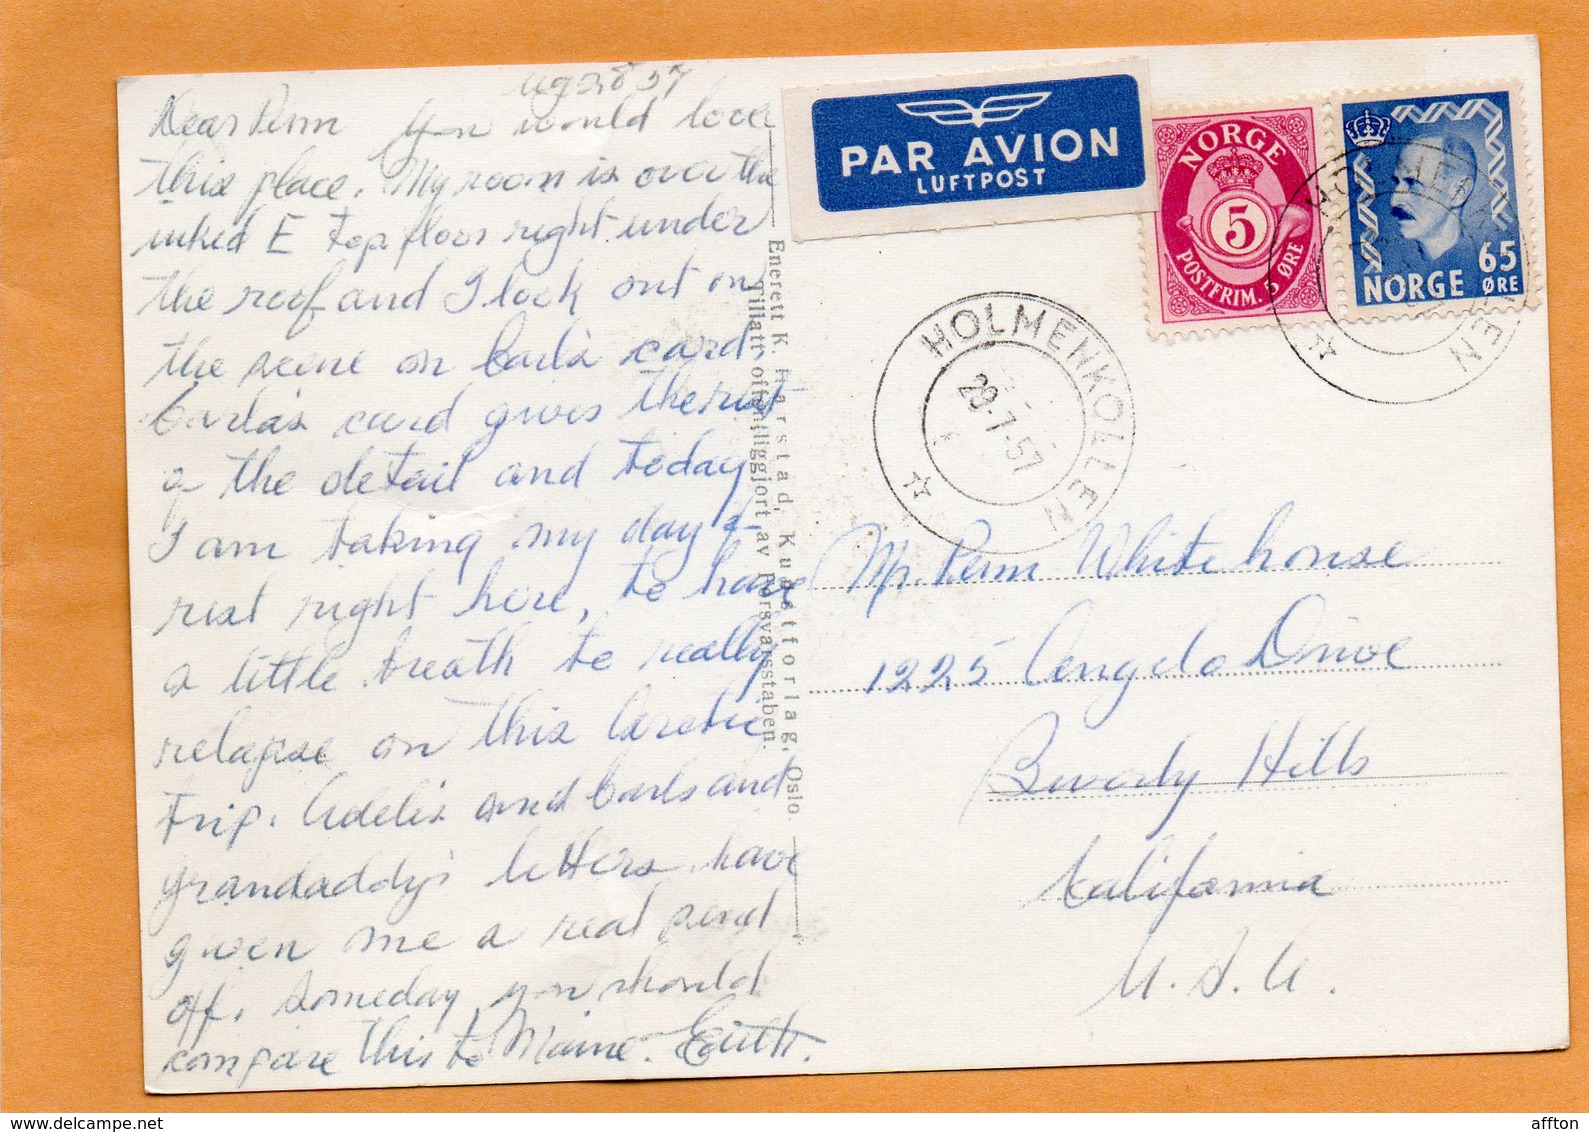 Dear Penn You would love
this place. My room is over the
inked E top floor right under
the roof and I look out on
the scene on Carl's card.
Carla's card gives the rest
of the detail and today
I am taking my day of
rest right here, to have
a little breath to really
relapse on this Arctic
trip. Adelis and Carls and
grandaddy's letters have
given me a real send
off. Someday you should
compare this to Maine. Edith.
Enerett K. Harstad, Kunstforlag, Oslo
Tillatt offentliggjort av Forsvarsstaben.
PAR AVION
LUFTPOST
NORGE
5
POSTFRIM. 5 ØRE
65
NORGE ØRE
HOLMENKOLLEN
29-7-57
HOLMENKOLLEN
Mr. Penn Whitehouse
1225 Angelo Drive
Beverly Hills
California
U.S.A.
affton